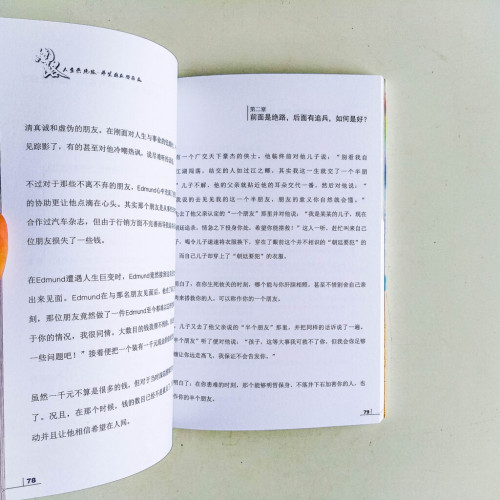 清真诚和虚伪的朋友。在刚面对人生与事业的
见踪影了，有的甚至对他冷嘲热讽，
不过对于那些不离不弃的朋友，Edmund心中
的协助更让他点滴在心头。其实那个朋友是从
合作过汽车杂志，但由于行销方面不完善
位朋友损失了一些钱。
在Edmund遭遇人生巨变时，Edmund竟然
出来见面。Edmund在与那名朋友见面后，
刻，那位朋友竟然做了一件Edmund至今
于你的情况，我很同情。大数目的钱我
一些问题吧！”接着便把一个装有一千元
虽然一千元不算是很多的钱，但对于当时
了。况且，在那个时候，钱的数目已经不
动并且让他相信希望在人间。
78
第二章
前面是绝路，后面有追兵，如何是好？
有一个广交天下豪杰的侠士。他临终前对他儿子说：“别看我自
江湖闯荡，结交的人如过江之鲫，其实我这一生就交了一个半朋
”儿子不解，他的父亲就贴近他的耳朵交代一番，然后对他说，“
我说的去见见我的这一个半朋友，朋友的意义你自然就会懂。”
去了他父亲认定的“一个朋友”那里并对他说：“我是某某的儿子，现在
廷追杀，情急之下投身你处，希望你能搭救！”这人一听，赶忙叫来自己
子，喝令儿子速速将衣服换下，穿在了眼前这个并不相识的“朝廷要犯”的
而自己儿子却穿上了“朝廷要犯”的衣服。
明白了；在你生死攸关的时刻，那个能与你肝胆相照，甚至不惜割舍自己亲
肉来搭救你的人，可以称作你的一个朋友。
，儿子又去了他父亲说的“半个朋友”那里，并把同样的话诉说了一遍。
半个朋友”听了便对他说：“孩子，这等大事我可救不了你，但我会你足够
缠让你远走高飞，我保证不会告发你。”
明白了：在你患难的时刻，那个能够明哲保身、不落井下石加害你的人，也
作你的半个朋友。
79